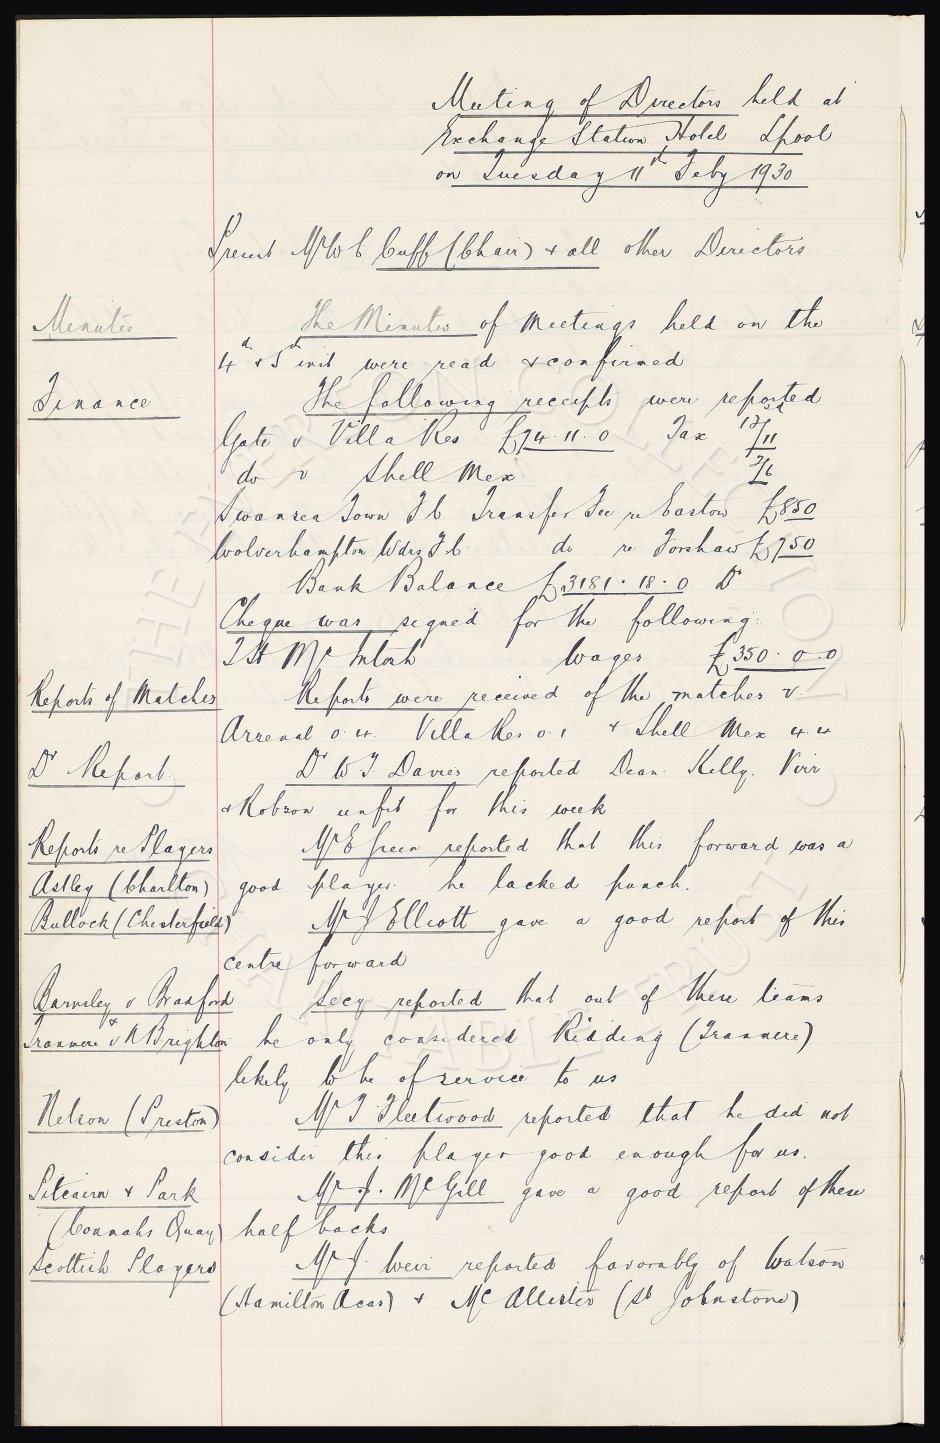 Meeting of Directors held at
Exchange Station Hotel Lpool
on Tuesday 11th Feby 1930
Present Mr W C Cuff (Chair) & all other Directors
Minutes The Minutes of Meetings held on the
4th & 5th inst were read & confirmed
Finance The following receipts were reported
Gate v Villa Res £74.11.0 Tax
do v Shell Mex 2/6
Swansea Town F C Transfer Fee re Easton £850
Wolverhampton Wdrs F C do re Forshaw £750
Bank Balance £3181.18.0 Dr
Cheque was signed for the following:
T H McIntosh Wages £350.0.0
Reports of Matches Reports were received of the matches v.
Arsenal 0.4. Villa Res 0.1 & Shell Mex 4.4
Dr Report. Dr W T Davies reported Dean. Kelly. Virr
& Robson unfit for this week
Reports re Players Mr E Green reported that this forward was a
Astley (Charlton) good player. he lacked punch.
Bullock (Chesterfield) Mr J Elliott gave a good report of this
centre forward
Barnsley v Bradford Secy reported that out of these teams
& Tranmere v N Brighton he only considered Ridding (Tranmere)
likely to be of service to us
Nelson (Preston) Mr T Fleetwood reported that he did not
consider this player good enough for us.
Pitcairn & Park Mr J. McGill gave a good report of these
(Connahs Quay) half backs
Scottish Players Mr J. Weir reported favorably of Watson
(Hamilton Acas) & McAllister (St Johnstone)
THE EVERTON COLLECTION CHARITABLE TRUST